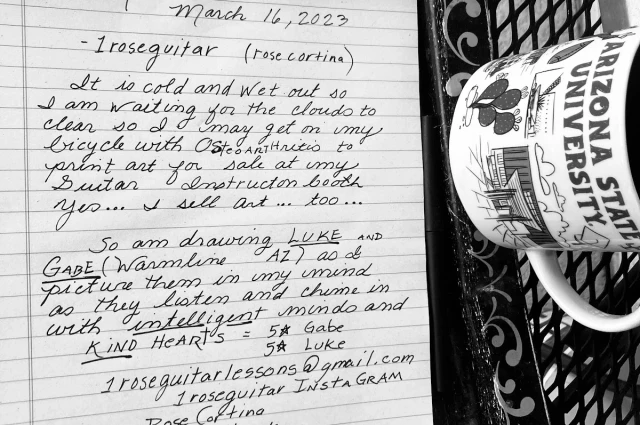 March 16, 2023
- 1roseguitar (rose cortina)
It is cold and wet out so
I am waiting for the clouds to
clear so I may get on my
bicycle with OSteoARTHRitis to
print art for sale at my
Guitar Instructor booth
Yes... I sell art... too...
So am drawing LUKE AND
GABE (Warmline AZ) as I
picture them in my mind
as they listen and chime in
with intelligent minds and
KIND HeARTS = 5☆ Gabe
5☆ Luke
1roseguitarlessons@gmail.com
1roseguitar INSTAGRAM
Rose Cortina
ARIZONA STATE
UNIVERSITY